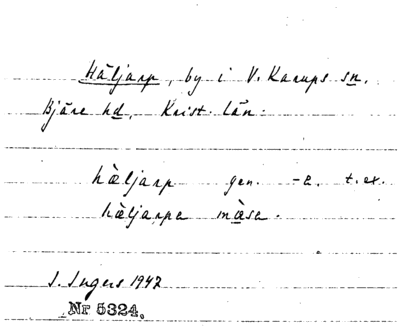 Häljarp, by i V. Karups sn.
Bjäre hd. Krist. län.
hæ̀ljarp gen. -a. t.ex.
hæ̀ljarpa mɑ̀sa.
I. Ingers 1947
Nr 5324.